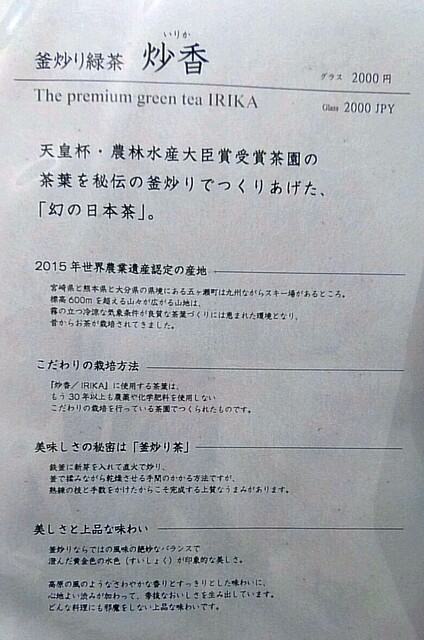 いりか
釜炒り緑茶 炒香 グラス 2000円
The premium green tea IRIKA Glass 2000 JPY
天皇杯・農林水産大臣賞受賞茶園の
茶葉を秘伝の釜炒りでつくりあげた、
「幻の日本茶」。
2015年世界農業遺産認定の産地
宮崎県と熊本県と大分県の県境にある五ヶ瀬町は九州ながらスキー場があるところ。
標高600mを超える山々が広がる山地は、
霧の立つ冷涼な気象条件が良質な茶葉づくりには恵まれた環境となり、
昔からお茶が栽培されてきました。
こだわりの栽培方法
『炒香/IRIKA』に使用する茶葉は、
もう30年以上も農薬や化学肥料を使用しない
こだわりの栽培を行っている茶園でつくられたものです。
美味しさの秘密は「釜炒り茶」
鉄釜に新芽を入れて直火で炒り、
釜で揉みながら乾燥させる手間のかかる方法ですが、
熟練の技と手数をかけたからこそ完成する上質なうまみがあります。
美しさと上品な味わい
釜炒りならではの風味の絶妙なバランスで
澄んだ黄金色の水色(すいしょく)が印象的な美しさ。
高原の風のようなさわやかな香りとすっきりとした味わいに、
心地よい渋みが加わって、奇抜なおいしさを生み出しています。
どんな料理にも邪魔をしない上品な味わいです。